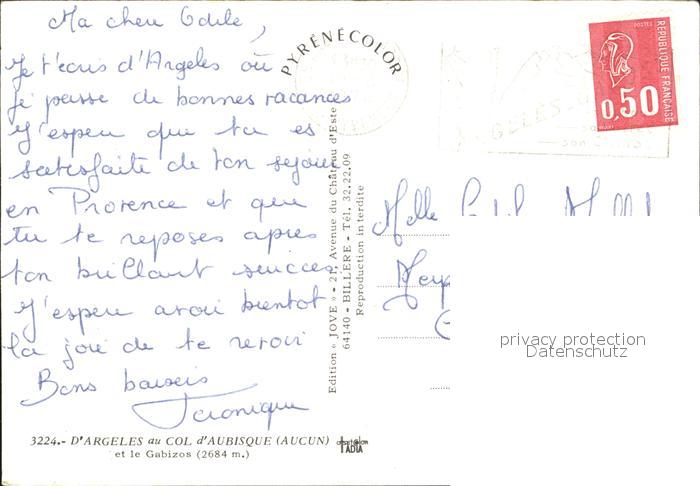 Ma chère Odile,
Je t'écris d'Argeles où
je passe de bonnes vacances
J'espère que tu es
satisfaite de ton séjour
en Provence et que
tu te reposes après
ton brillant succès
J'espère avoir bientôt
la joie de te revoir
Bons baisers
Véronique
3224.- D'ARGELES au COL d'AUBISQUE (AUCUN)
et le Gabizos (2684 m.)
PYRÉNÉCOLOR
Edition « JOVE » - 21, Avenue du Château d'Este
64140 - BILLÈRE - Tél. 32.22.09
Reproduction interdite
POSTES
RÉPUBLIQUE FRANÇAISE
0,50
Melle
privacy protection
Datenschutz